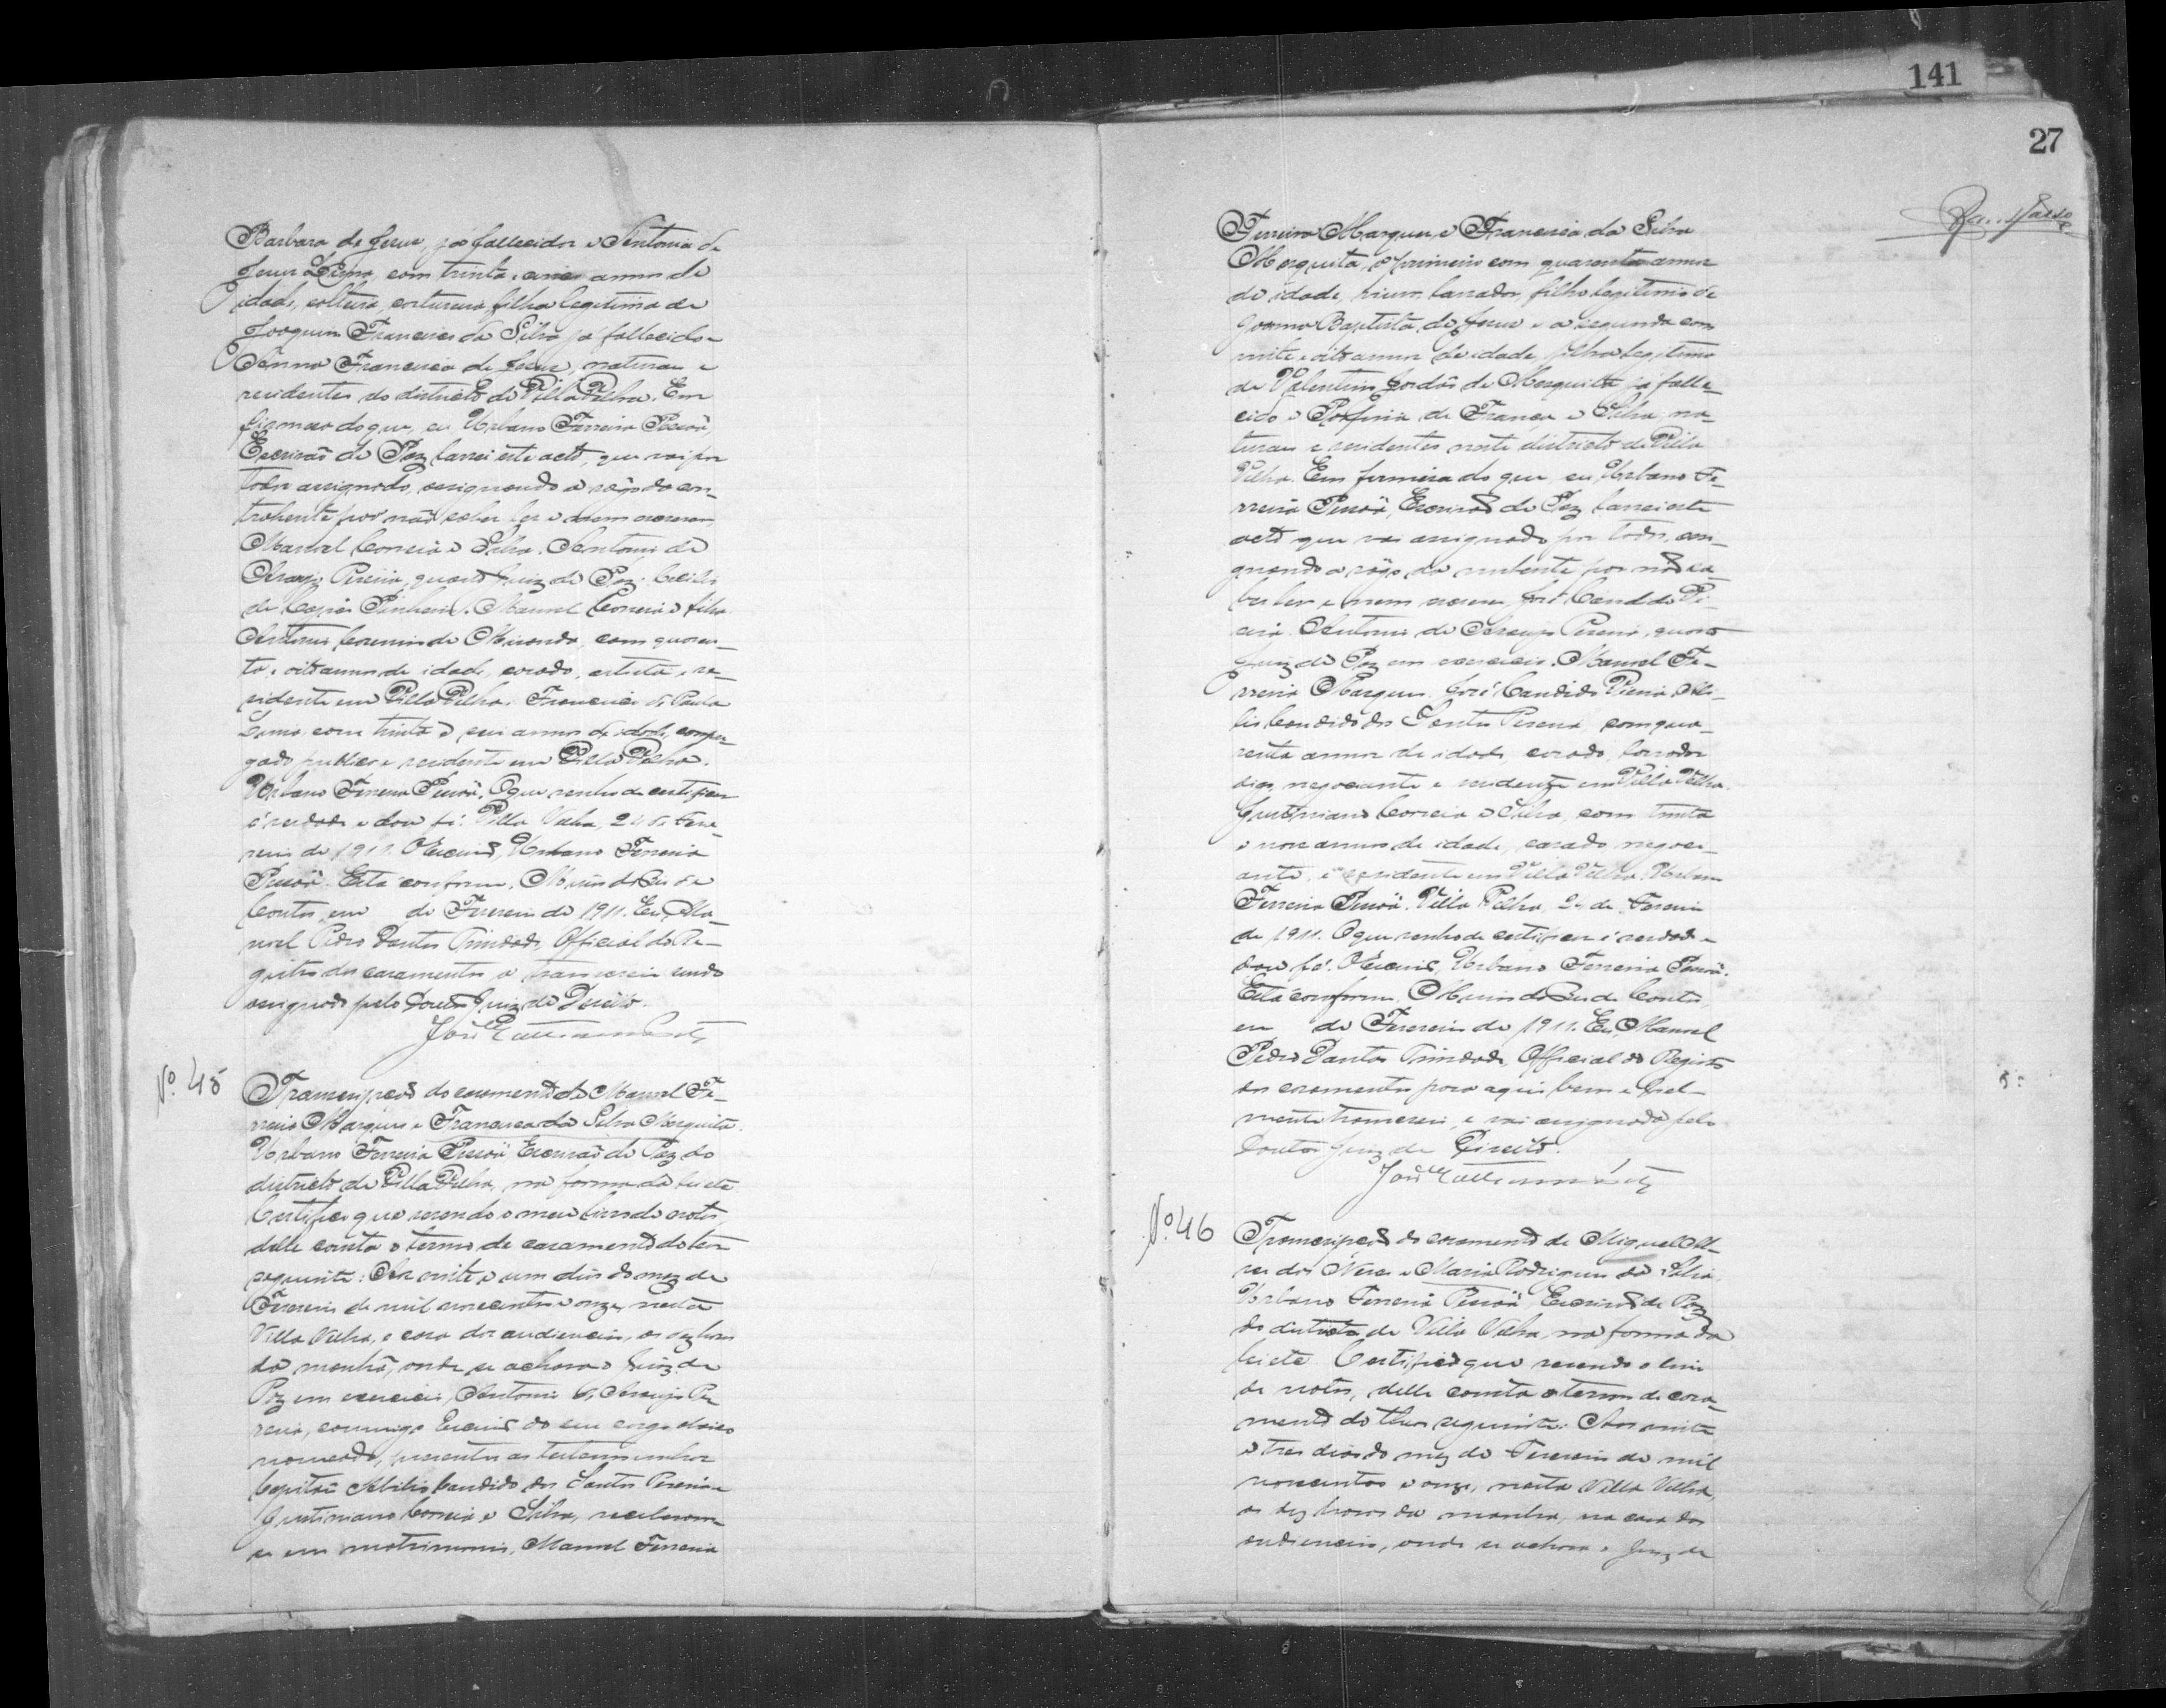 Barbara de Jesus, já fallecidos e Antonia de
Jesus Lima, com trinta e cinco annos de
idade, solteira, costureira, filha legitima de
Joaquim Francisco da Silva já fallecido e
Anna Francisca de Jesus, naturaes e
residentes do districto de Villa Velha. Em
firmesa do que, eu Urbano Ferreira Pessôa,
Escrivão de Paz lavrei este acto, que vai por
todos assignado, assignando a rogo da con-
trahente por não saber ler e nem escrever
Manoel Correia e Silva. Antonio de
Araujo Pereira, quarto Juiz de Paz.
de Pinheiro. Manoel Correia e Silva
Antonio de Miranda, com quaren-
ta e oito annos de idade, casado, artista, re-
sidente em Villa Velha. Francisco de Paula
Lima com trinta e seis annos de idade, empre-
gado publico e residente em Villa Velha.
Urbano Ferreira Pessôa. O que venho de certificar
é verdade e dou fé. Villa Velha, 21 de Feve-
reiro de 1911. O Escrivão, Urbano Ferreira
Pessôa. Está conforme. Minas do Rio de
Contas, em de Fevereiro de 1911. Eu, Ma-
noel Pedro Dantas Trindade, Official do Re-
gistro dos casamentos o transcrevi sendo
assignado pelo Doutor Juiz de Direito.
José
Nº 45
Transcripção do casamento de Manoel Fer-
reira Marques e Francisca da Silva Mesquita.
Urbano Ferreira Pessôa, Escrivão de Paz do
districto de Villa Velha, na forma da lei etc.
Certifico que revendo o meu livro de notas,
delle consta o termo de casamento do teor
seguinte: Aos vinte e um dias do mez de
Fevereiro de mil novecentos e onze, nesta
Villa Velha, e casa das audiencias, as dez horas
da manhã, onde se achava o Juiz de
Paz em exercicio, Antonio de Araujo Pe-
reira, commigo Escrivão do seu cargo abaixo
nomeado, presentes as testemunhas
Capitão Abilio Candido dos Santos Pereira e
Justiniano Correia e Silva, receberam-
se em matrimonio, Manoel Ferreira
141
27
Ferreira Marques, e Francisca da Silva
Mesquita, o primeiro com quarenta annos
de idade, viuvo, lavrador, filho legitimo de
Joanna Baptista de Jesus e a segunda com
vinte e oito annos de idade filha legitima
de Valentim Jordão de Mesquita já falle-
cido e Porfiria de França e Silva, na-
turaes e residentes neste districto de Villa
Velha. Em firmesa do que, eu, Urbano Fer-
reira Pessôa, Escrivão de Paz lavrei este
acto que vai assignado por todos, assi-
gnando a rogo da nubente por não sa-
ber ler e nem escrever José Candido Vi-
eira. Antonio de Araujo Pereira, quarto
Juiz de Paz em exercicio. Manoel Fer-
reira Marques. José Candido Vieira. Abi-
lio Candido dos Santos Pereira com qua-
renta annos de idade, casado, lavrador
digo, negociante e residente em Villa Velha.
Justiniano Correia e Silva, com trinta
e nove annos de idade, casado, negoci-
ante, e residente em Villa Velha. Urbano
Ferreira Pessôa. Villa Velha, 21 de Fevereiro
de 1911. O que venho de certificar é verdade e
dou fé. O Escrivão, Urbano Ferreira Pessôa.
Está conforme. Minas do Rio de Contas,
em de Fevereiro de 1911. Eu, Manoel
Pedro Dantas Trindade, Official do Registro
dos casamentos para aqui bem e fiel-
mente transcrevi, e vai assignado pelo
Doutor Juiz de Direito.
José
Nº 46
Transcripção do casamento de Miguel Al-
ves das Neves e Maria Rodrigues da Silva.
Urbano Ferreira Pessôa, Escrivão de Paz
do districto de Villa Velha, na forma da
lei etc. Certifico que revendo o livro
de notas, delle consta o termo de casa-
mento do theor seguinte: Aos vinte
e tres dias do mez de Fevereiro de mil
novecentos e onze, nesta Villa Velha,
as dez horas da manhã, na casa das
audiencias, onde se achava o Juiz de